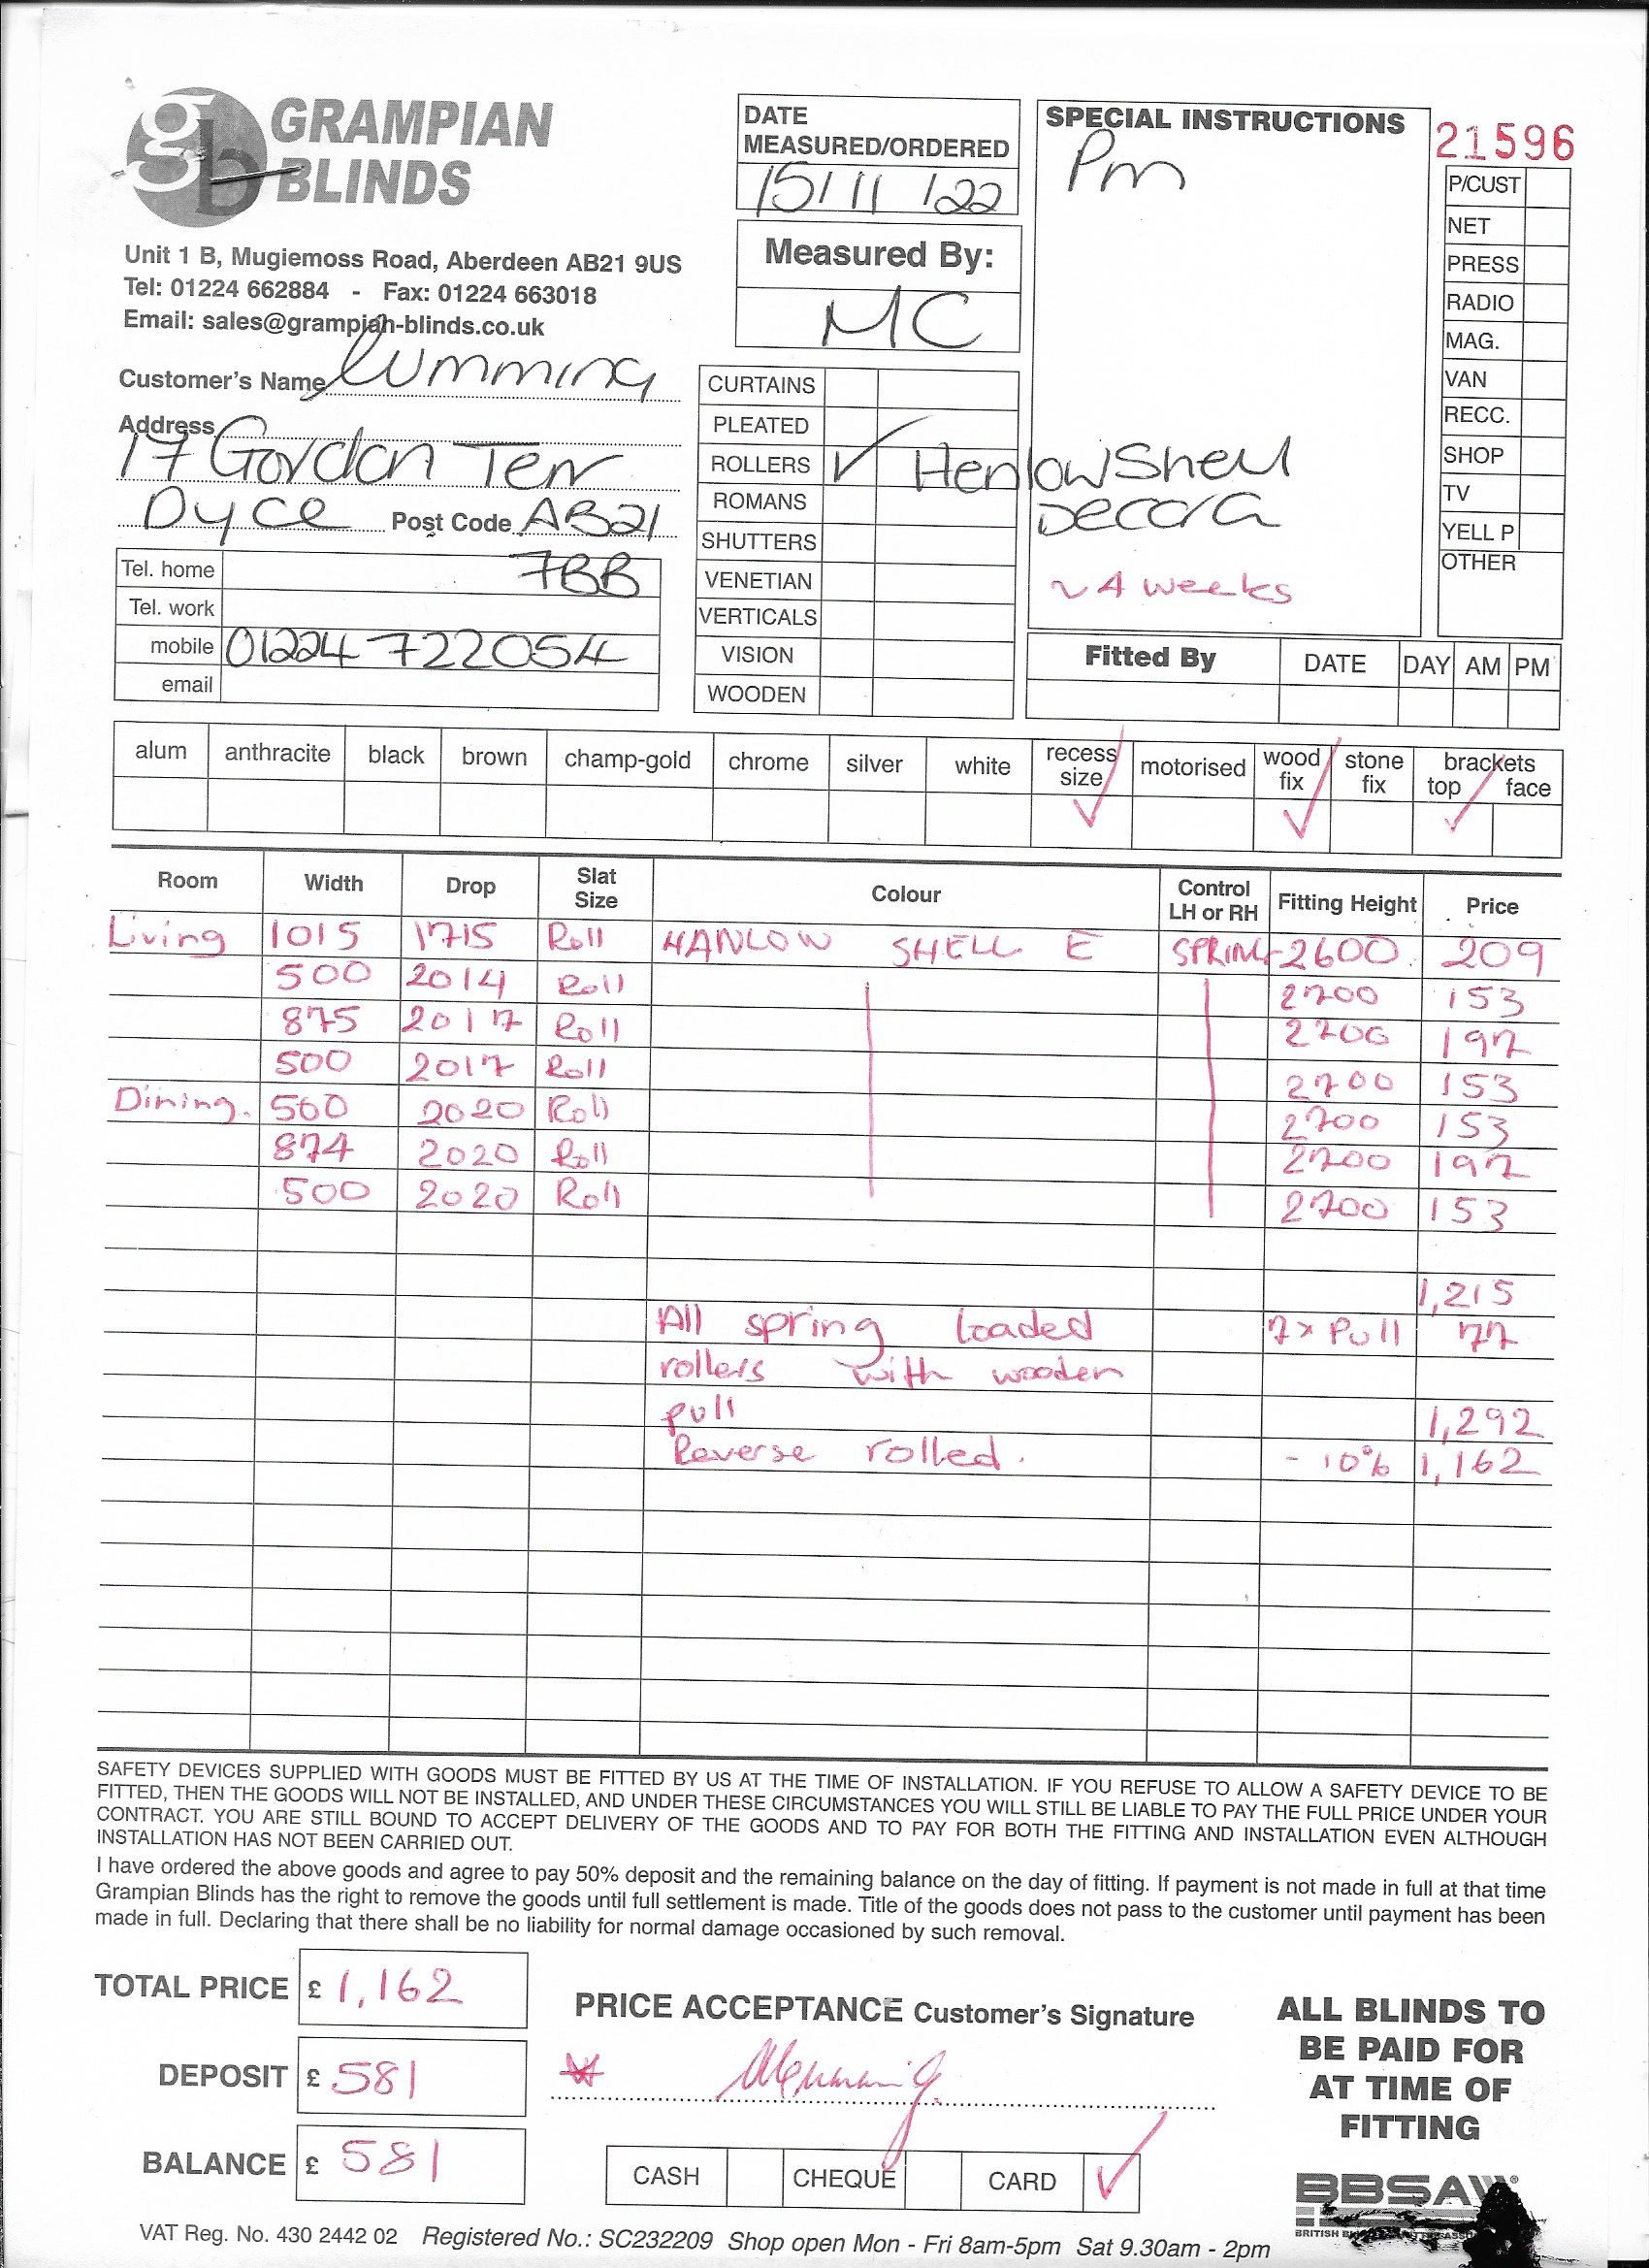 gb GRAMPIAN
BLINDS
Unit 1 B, Mugiemoss Road, Aberdeen AB21 9US
Tel: 01224 662884 - Fax: 01224 663018
Email: sales@grampian-blinds.co.uk
Customer's Name Cumming
Address
17 Gordon Terr
Dyce Post Code AB21
7BB
Tel. home
Tel. work
mobile 01224 722054
email
DATE
MEASURED/ORDERED
15/11/22
Measured By:
MC
CURTAINS
PLEATED
ROLLERS ✓ Henlow Shell
Decora
ROMANS
SHUTTERS
VENETIAN
VERTICALS
VISION
WOODEN
SPECIAL INSTRUCTIONS
Pm
~ 4 weeks
21596
P/CUST
NET
PRESS
RADIO
MAG.
VAN
RECC.
SHOP
TV
YELL P
OTHER
Fitted By DATE DAY AM PM
alum anthracite black brown champ-gold chrome silver white recess size ✓ motorised wood fix ✓ stone fix brackets top ✓ face
Room Width Drop Slat Size Colour Control LH or RH Fitting Height Price
Living 1015 1715 Roll HANLOW SHELL E SPRING 2600 209
500 2014 Roll 2700 153
875 2017 Roll 2700 197
500 2017 Roll 2700 153
Dining. 500 2020 Roll 2700 153
874 2020 Roll 2700 197
500 2020 Roll 2700 153
1,215
All spring loaded 7 x Pull 77
rollers with wooden
pull 1,292
Reverse rolled. - 10% 1,162
SAFETY DEVICES SUPPLIED WITH GOODS MUST BE FITTED BY US AT THE TIME OF INSTALLATION. IF YOU REFUSE TO ALLOW A SAFETY DEVICE TO BE
FITTED, THEN THE GOODS WILL NOT BE INSTALLED, AND UNDER THESE CIRCUMSTANCES YOU WILL STILL BE LIABLE TO PAY THE FULL PRICE UNDER YOUR
CONTRACT. YOU ARE STILL BOUND TO ACCEPT DELIVERY OF THE GOODS AND TO PAY FOR BOTH THE FITTING AND INSTALLATION EVEN ALTHOUGH
INSTALLATION HAS NOT BEEN CARRIED OUT.
I have ordered the above goods and agree to pay 50% deposit and the remaining balance on the day of fitting. If payment is not made in full at that time
Grampian Blinds has the right to remove the goods until full settlement is made. Title of the goods does not pass to the customer until payment has been
made in full. Declaring that there shall be no liability for normal damage occasioned by such removal.
TOTAL PRICE £ 1,162
DEPOSIT £ 581
BALANCE £ 581
PRICE ACCEPTANCE Customer's Signature
CASH CHEQUE CARD ✓
ALL BLINDS TO
BE PAID FOR
AT TIME OF
FITTING
BBSA
BRITISH
VAT Reg. No. 430 2442 02 Registered No.: SC232209 Shop open Mon - Fri 8am-5pm Sat 9.30am - 2pm